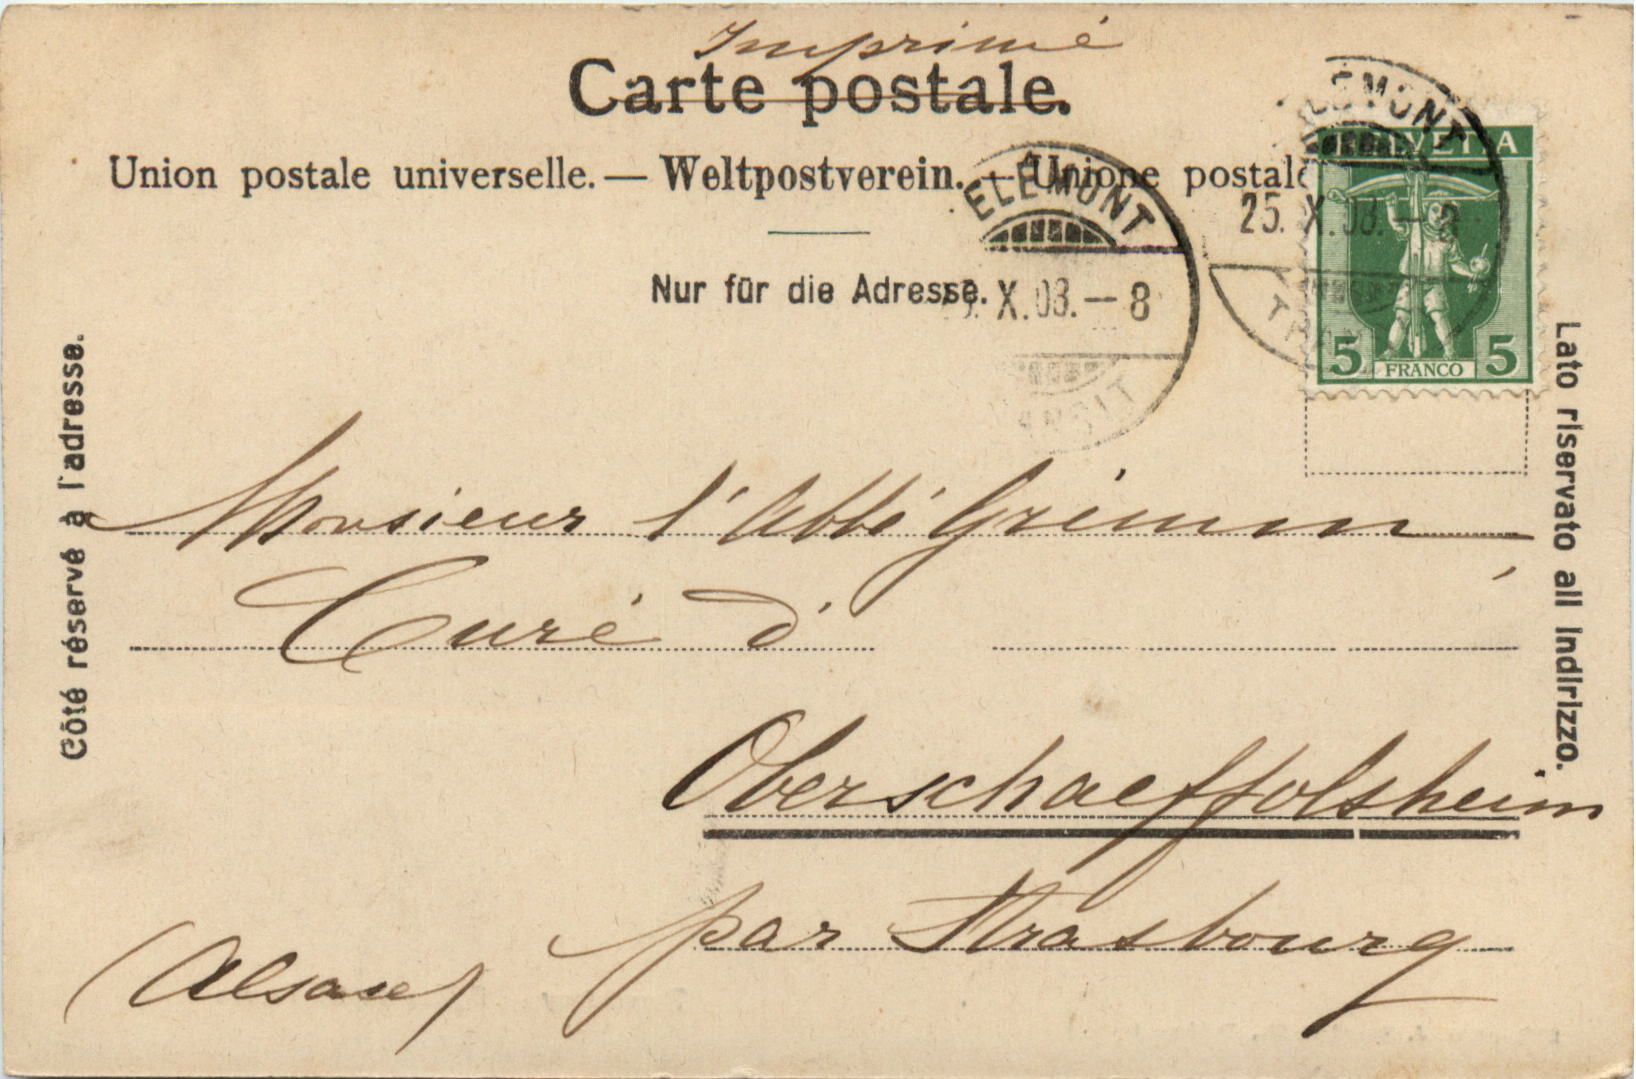 Imprimé
Carte postale.
Union postale universelle. — Weltpostverein. — Unione postale
Nur für die Adresse.
Côté réservé à l'adresse.
Lato riservato all indirizzo.
ELÉMONT
X.08.—8
ELÉMONT
25. X.08.—8
HELVETIA
5 FRANCO 5
Monsieur l'Abbé Grimm,
Curé d'
Oberschaeffolsheim
par Strasbourg
(Alsace)